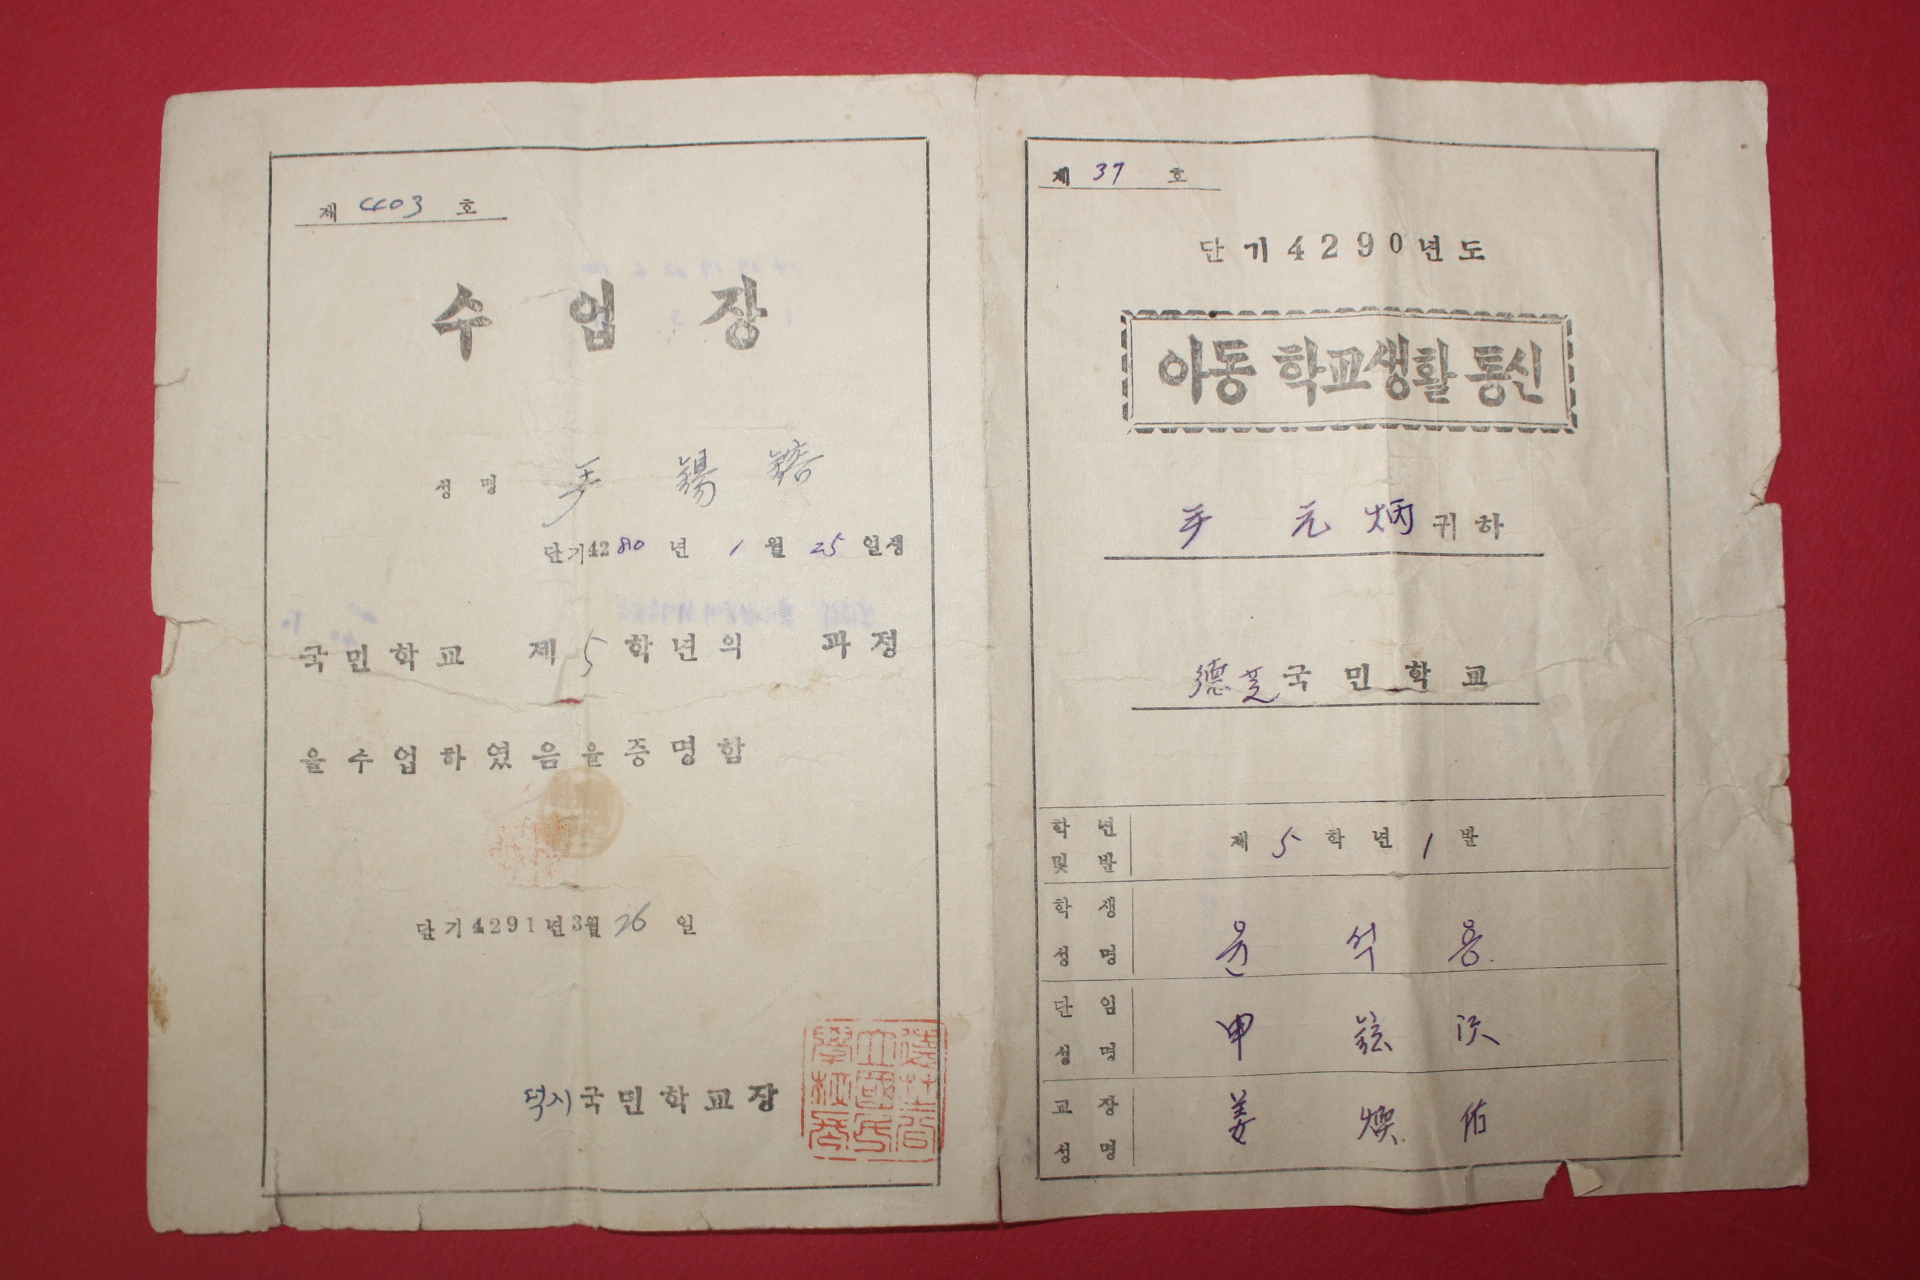 제 403 호
수 업 장
성 명
단기4280 년 1 월 25 일생
국민학교 제 5 학년의 과정
을 수업하였음을증명함
단기4291년3월 26 일
덕지 국민학교장
제 37 호
단기4290년도
아동 학교생활 통신
元 炳 귀하
德芝 국민학교
학년 및 반 제 5 학년 1 반
학생 성명 윤 석 용
단임 성명 申 鉉
교장 성명 姜 煥 佑